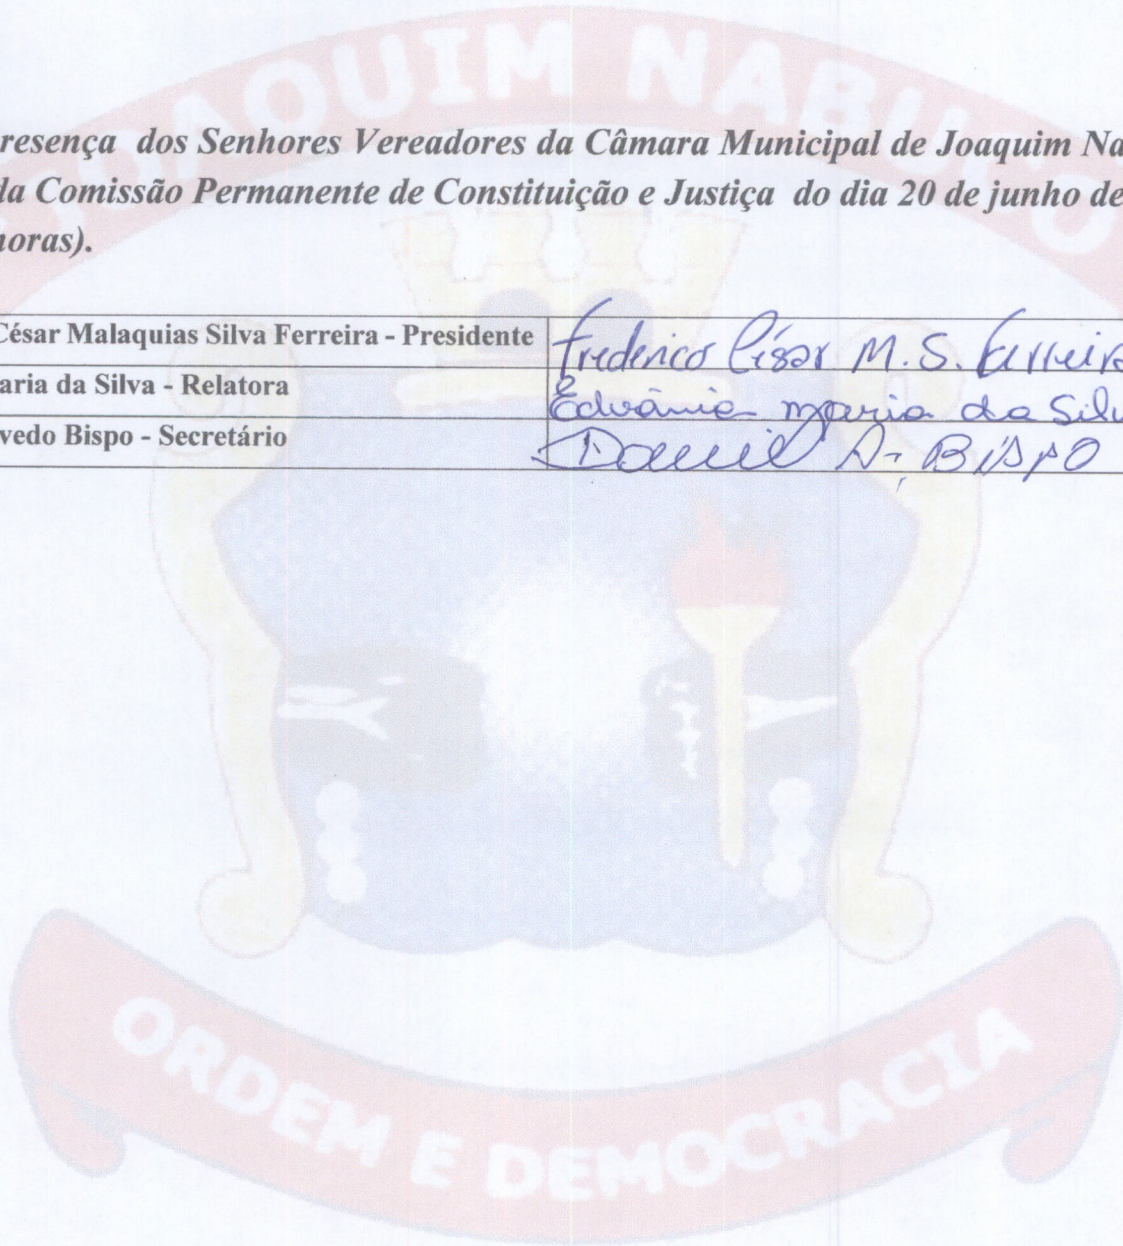 JOAQUIM NABUCO
resença dos Senhores Vereadores da Câmara Municipal de Joaquim Na
da Comissão Permanente de Constituição e Justiça do dia 20 de junho de
horas).
César Malaquias Silva Ferreira - Presidente Frederico César M. S. Ferreira
aria da Silva - Relatora Edvânia maria da Silv
vedo Bispo - Secretário Daniel A. BISPO
ORDEM E DEMOCRACIA